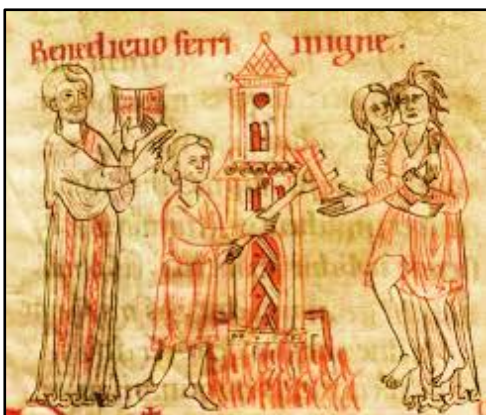 Benedictio ferri inigne.